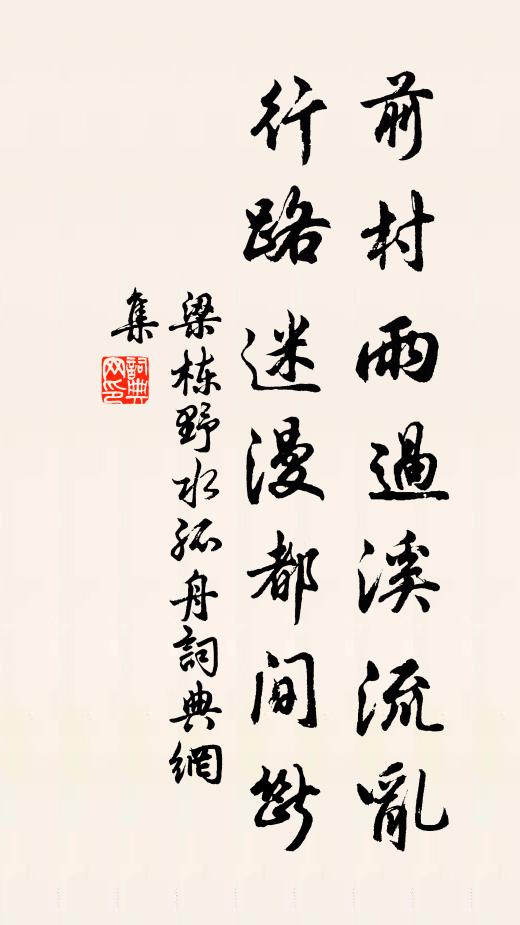 前村雨過溪流亂
行路迷漫都间斷
梁栋野水孤舟詞典網
集
詞典
网印